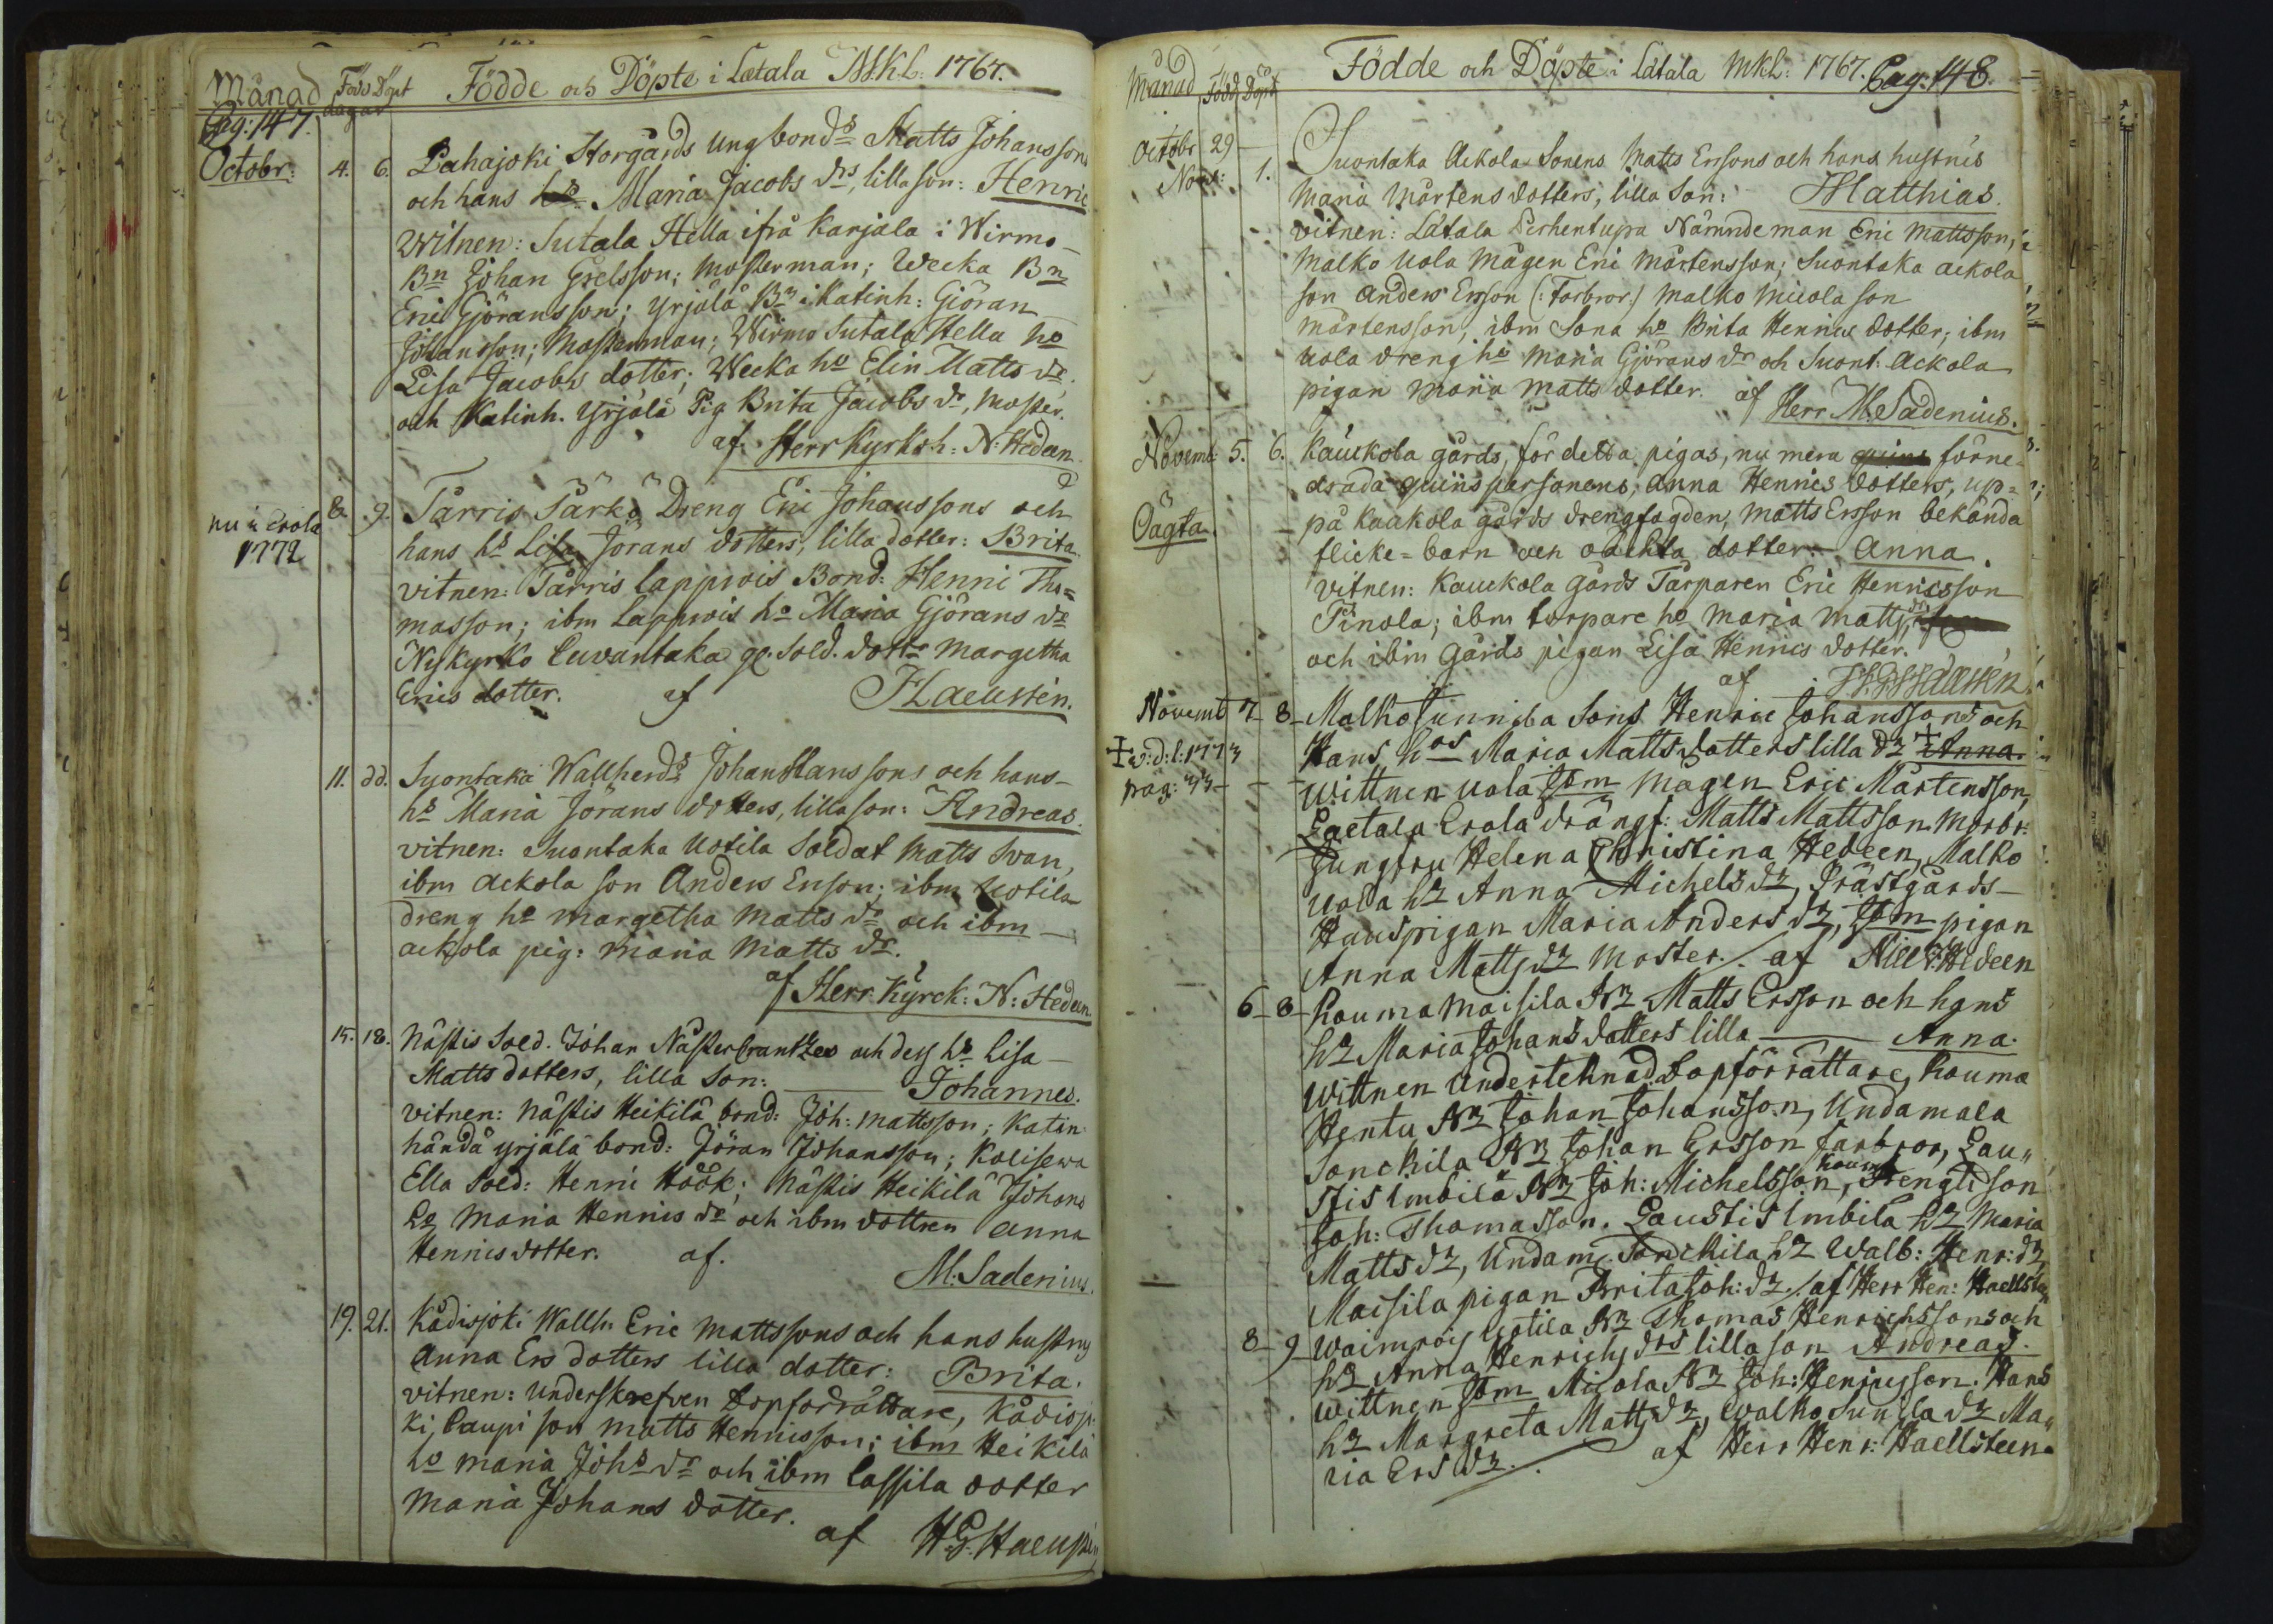 Månad Föd Döpt Födde och Döpte i Letala M.K.L: 1767.
Pag: 147. dagar
Octobr: 4. 6. Pahajoki Storgårds ungbonds Matts Johanssons
och hans hs Maria Jacobs drs, lilla son: Henric
Witnen: Sutala Hella ifrå Karjala i Wirmo
Bn Johan ; Mosterman; Wecka Bn
Eric Gjöransson; Yrjälä Bn i Katinh: Giöran
Johansson; Mosterman; Wirmo Sutala Hella ho
Lisa Jacobs dotter; Wecka ho Elin Matts dr.
och Katinh. Yrjälä Pig Brita Jacobs dr, Moster.
af Herr Kyrkoh: N: Hedeen
nu i Erola 1772
8. 9. Tarris Särkö Dreng Eric Johanssons och
hans hs Lisa Jörans dotters, lilla dotter: Brita.
vitnen: Tarris Lappwis Bond: Henric Tho=
masson; ibm Lappwis ho Maria Gjörans dr
Nykyrko Cuvantaka gl. Sold. dottr Margetha
Erics dotter. af
11. dd. Suontaka Wallherds Johan Hanssons och hans
hs Maria Jörans dotters, lilla son: Andreas.
vitnen: Suontaka Uotila Soldat Matts Svan,
ibm Ackola son Anders Ersson; ibm Uotila
dreng ho Margetha Matts dr och ibm
ackola pig: Maria Matts dr.
af Herr Kyrck: N: Hedeen.
15. 18. Nästis Sold. Johan och dess hs Lisa
Matts dotters, lilla Son: Johannes.
vitnen: Nästis Heikilä bond: Joh: Mattsson; Katin-
händä yrjälä bond: Jöran Johansson; Kolisewa
Ella Sold: Henric Höök; Nästis Heikilä Johans
ho Maria Henrics dr och ibm dottren Anna
Henrics dotter. af.
M: Sadenius.
19. 21. Kådisjoki Wallh. Eric Mattssons och hans hustrus
Anna Ers dotters lilla dotter: Brita.
vitnen: Underskrefven Dopförrättare, Kådisjo-
ki Caupi son Matts Henricsson; ibm Heikilä
ho Maria Johs dr och ibm Lassila dotter
Maria Johans dotter.
af
Månad Född Döpt Födde och Döpte i Låtala MKL: 1767. Pag. 148.
Octobr 29
Novr: 1. Suontaka Ackola Sonens Matts Erssons och hans hustrus
Maria Mårtens dotters, lilla Son: Matthias.
vitnen: Låtala Perhentupa Nämndeman Eric Mattsson,
Malko Uola Mågen Eric Mårtensson; Suontaka Ackola
son Anders Ersson (: Farbror:) Malko Micola son
Mårtensson, ibm Sona ho Brita Henrics dotter; ibm
Uola dreng ho Maria Gjörans dr och Suont: Ackola
pigan Maria Matts dotter. af Herr M. Sadenius.
Novemb: 5. 6. Kauckola gårds, för detta pigas, nu mera förne-
Oägta. qvinspersonens, Anna Henrics dotters, up-
på Kauckola gårds drengfogden, Matts Ersson bekända
flicke=barn och oächta dotter: Anna.
vitnen: Kauckola gårds Tårparen Eric Henricsson
Pinola; ibm torpare ho Maria Matts dr
och ibm gårds pigan Lisa Henrics dotter.
af
Novemb 7 8 Malko Sunnila Sons Henric Johanssons och
+ v:d:l: 1773 Hans hos Maria Matts dotters lilla dr + Anna.
pag: Wittnen Uola Ibm mågen Eric Mårtensson,
Laetala Erola drängf: Matts Mattsson. Morbr:
Jungfru Helena Christina Hedeen, Malko
Uola hr Anna Michels dr, Prästgårds
Huuspigan Maria Anders dr, Ibm pigan
Anna Matts dr moster./. af Hedeen
6 8 Kouma Maisila Br Matts Ersson och hans
hr Maria Johans dotters lilla Anna.
Wittnen Undertecknad. Dopförrättare, Kouma
Hentu Br Johan Johansson, Undamala
Sonckila Br Johan Ersson farbror, Lau„
stis Imbilä Br Joh: Michelsson, Kouma son
Joh: Thomasson. Laustis Imbila hr Maria
Matts dr, Undam: Sonckila hr Walb: Henr: dr,
Maisila pigan Brita Joh: dr./. af Herr Hen: Haellsten
8 9 Waimois Uotila Br Thomas Henrichssons och
hr Anna Henrichs drs lilla son Andreas.
Wittnen Ibm Micola Br Joh: Henricsson. Hans
hr Margreta Matts dr, Walko Sunila dr Ma„
ria Ers dr./. af Herr Henr: Haellsteen